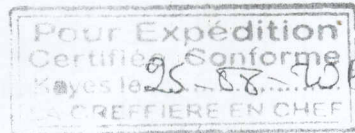 Pour Expédition
Certifiée Conforme
Kayes le
LA GREFFIERE EN CHEF